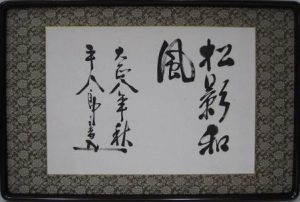 松影和
風
大正八年秋
平八郎書